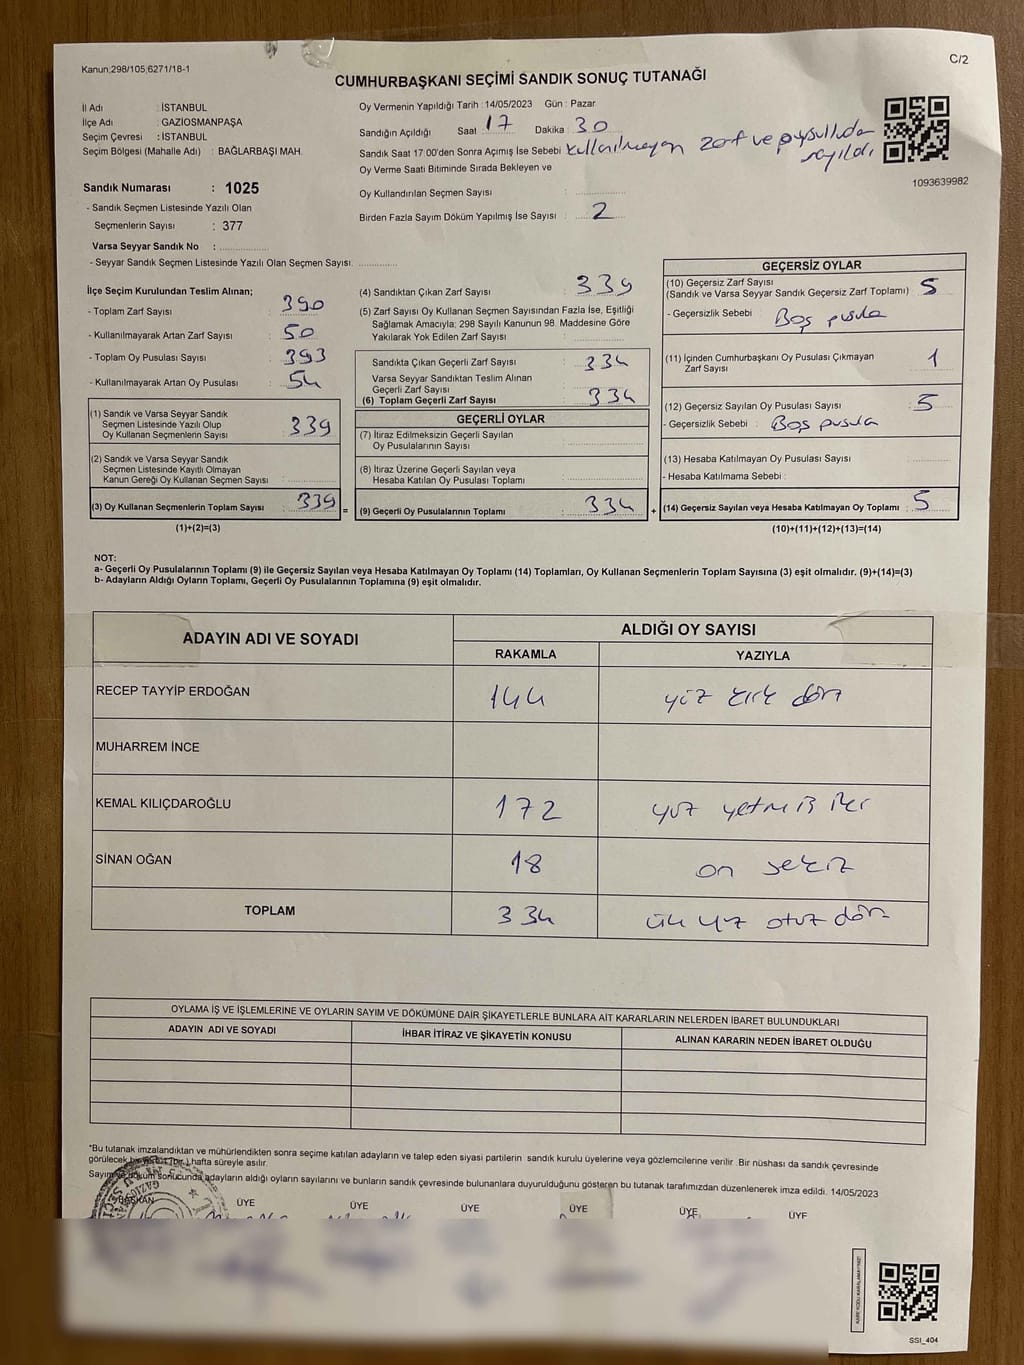 Kanun;298/105;6271/18-1
C/2
CUMHURBAŞKANI SEÇİMİ SANDIK SONUÇ TUTANAĞI
İl Adı : İSTANBUL
İlçe Adı : GAZİOSMANPAŞA
Seçim Çevresi : İSTANBUL
Seçim Bölgesi (Mahalle Adı) : BAĞLARBAŞI MAH.
Sandık Numarası : 1025
- Sandık Seçmen Listesinde Yazılı Olan
Seçmenlerin Sayısı : 377
Varsa Seyyar Sandık No :
- Seyyar Sandık Seçmen Listesinde Yazılı Olan Seçmen Sayısı.
Oy Vermenin Yapıldığı Tarih : 14/05/2023 Gün : Pazar
Sandığın Açıldığı Saat 17 Dakika 30
Sandık Saat 17:00'den Sonra Açımış İse Sebebi kullanılmayan zarf ve pusulda
sayıldı
Oy Verme Saati Bitiminde Sırada Bekleyen ve
Oy Kullandırılan Seçmen Sayısı :
Birden Fazla Sayım Döküm Yapılmış İse Sayısı : 2
1093639982
İlçe Seçim Kurulundan Teslim Alınan;
- Toplam Zarf Sayısı : 390
- Kullanılmayarak Artan Zarf Sayısı : 50
- Toplam Oy Pusulası Sayısı : 393
- Kullanılmayarak Artan Oy Pusulası : 54
(1) Sandık ve Varsa Seyyar Sandık
Seçmen Listesinde Yazılı Olup
Oy Kullanan Seçmenlerin Sayısı : 339
(2) Sandık ve Varsa Seyyar Sandık
Seçmen Listesinde Kayıtlı Olmayan
Kanun Gereği Oy Kullanan Seçmen Sayısı :
(3) Oy Kullanan Seçmenlerin Toplam Sayısı : 339 =
(1)+(2)=(3)
(4) Sandıktan Çıkan Zarf Sayısı : 339
(5) Zarf Sayısı Oy Kullanan Seçmen Sayısından Fazla İse, Eşitliği
Sağlamak Amacıyla; 298 Sayılı Kanunun 98. Maddesine Göre
Yakılarak Yok Edilen Zarf Sayısı :
Sandıkta Çıkan Geçerli Zarf Sayısı : 334
Varsa Seyyar Sandıktan Teslim Alınan
Geçerli Zarf Sayısı :
(6) Toplam Geçerli Zarf Sayısı : 334
GEÇERLİ OYLAR
(7) İtiraz Edilmeksizin Geçerli Sayılan
Oy Pusulalarının Sayısı :
(8) İtiraz Üzerine Geçerli Sayılan veya
Hesaba Katılan Oy Pusulası Toplamı :
(9) Geçerli Oy Pusulalarının Toplamı : 334 +
GEÇERSİZ OYLAR
(10) Geçersiz Zarf Sayısı
(Sandık ve Varsa Seyyar Sandık Geçersiz Zarf Toplamı) : 5
- Geçersizlik Sebebi : Boş pusula
(11) İçinden Cumhurbaşkanı Oy Pusulası Çıkmayan
Zarf Sayısı : 1
(12) Geçersiz Sayılan Oy Pusulası Sayısı : 5
- Geçersizlik Sebebi : Boş pusula
(13) Hesaba Katılmayan Oy Pusulası Sayısı :
- Hesaba Katılmama Sebebi :
(14) Geçersiz Sayılan veya Hesaba Katılmayan Oy Toplamı : 5
(10)+(11)+(12)+(13)=(14)
NOT:
a- Geçerli Oy Pusulalarının Toplamı (9) ile Geçersiz Sayılan veya Hesaba Katılmayan Oy Toplamı (14) Toplamları, Oy Kullanan Seçmenlerin Toplam Sayısına (3) eşit olmalıdır. (9)+(14)=(3)
b- Adayların Aldığı Oyların Toplamı, Geçerli Oy Pusulalarının Toplamına (9) eşit olmalıdır.
ADAYIN ADI VE SOYADI
ALDIĞI OY SAYISI
RAKAMLA YAZIYLA
RECEP TAYYİP ERDOĞAN 144 yüz kırk dört
MUHARREM İNCE
KEMAL KILIÇDAROĞLU 172 yüz yetmiş iki
SİNAN OĞAN 18 on sekiz
TOPLAM 334 üç yüz otuz dört
OYLAMA İŞ VE İŞLEMLERİNE VE OYLARIN SAYIM VE DÖKÜMÜNE DAİR ŞİKAYETLERLE BUNLARA AİT KARARLARIN NELERDEN İBARET BULUNDUKLARI
ADAYIN ADI VE SOYADI İHBAR İTİRAZ VE ŞİKAYETİN KONUSU ALINAN KARARIN NEDEN İBARET OLDUĞU
*Bu tutanak imzalandıktan ve mühürlendikten sonra seçime katılan adayların ve talep eden siyasi partilerin sandık kurulu üyelerine veya gözlemcilerine verilir. Bir nüshası da sandık çevresinde
görülecek bir hafta süreyle asılır.
Sayım ve döküm sonucunda adayların aldığı oyların sayılarını ve bunların sandık çevresinde bulunanlara duyurulduğunu gösteren bu tutanak tarafımızdan düzenlenerek imza edildi. 14/05/2023
BAŞKAN ÜYE ÜYE ÜYE ÜYE ÜYE ÜYE
SSI_404